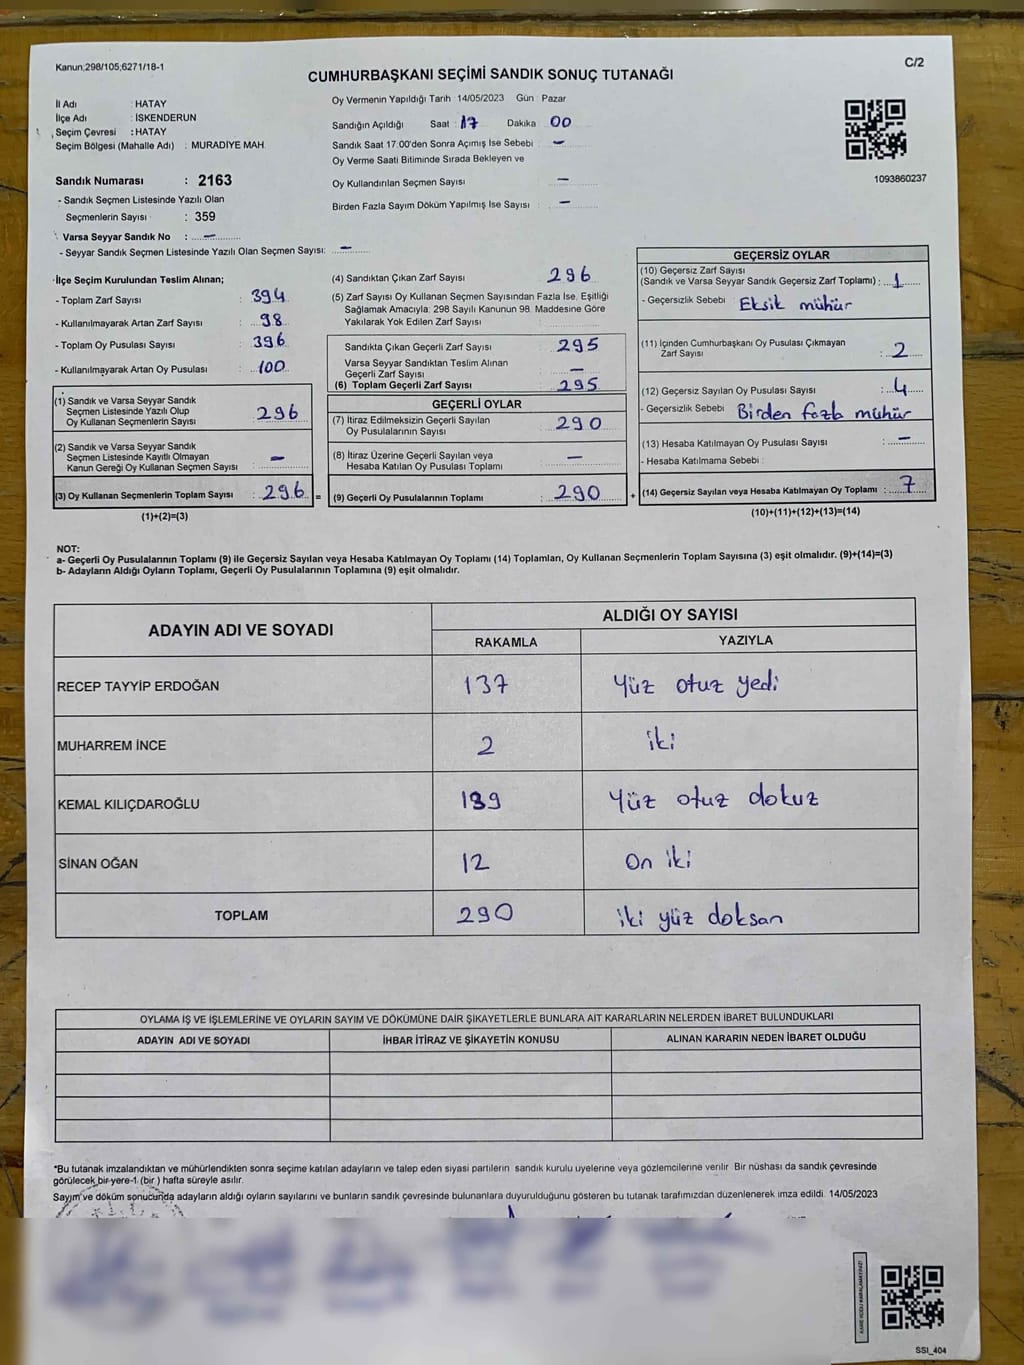 Kanun;298/105,6271/18-1
C/2
CUMHURBAŞKANI SEÇİMİ SANDIK SONUÇ TUTANAĞI
İl Adı : HATAY
İlçe Adı : İSKENDERUN
Seçim Çevresi : HATAY
Seçim Bölgesi (Mahalle Adı) : MURADİYE MAH.
Sandık Numarası : 2163
- Sandık Seçmen Listesinde Yazılı Olan
Seçmenlerin Sayısı : 359
Varsa Seyyar Sandık No : –
- Seyyar Sandık Seçmen Listesinde Yazılı Olan Seçmen Sayısı: –
Oy Vermenin Yapıldığı Tarih 14/05/2023 Gün Pazar
Sandığın Açıldığı Saat : 17 Dakika 00
Sandık Saat 17:00'den Sonra Açımış İse Sebebi : –
Oy Verme Saati Bitiminde Sırada Bekleyen ve
Oy Kullandırılan Seçmen Sayısı –
Birden Fazla Sayım Döküm Yapılmış İse Sayısı : –
1093860237
İlçe Seçim Kurulundan Teslim Alınan;
- Toplam Zarf Sayısı : 394
- Kullanılmayarak Artan Zarf Sayısı : 98
- Toplam Oy Pusulası Sayısı : 396
- Kullanılmayarak Artan Oy Pusulası : 100
(1) Sandık ve Varsa Seyyar Sandık
Seçmen Listesinde Yazılı Olup
Oy Kullanan Seçmenlerin Sayısı : 296
(2) Sandık ve Varsa Seyyar Sandık
Seçmen Listesinde Kayıtlı Olmayan
Kanun Gereği Oy Kullanan Seçmen Sayısı : –
(3) Oy Kullanan Seçmenlerin Toplam Sayısı : 296 =
(1)+(2)=(3)
(4) Sandıktan Çıkan Zarf Sayısı 296
(5) Zarf Sayısı Oy Kullanan Seçmen Sayısından Fazla İse, Eşitliği
Sağlamak Amacıyla; 298 Sayılı Kanunun 98. Maddesine Göre
Yakılarak Yok Edilen Zarf Sayısı :
Sandıkta Çıkan Geçerli Zarf Sayısı : 295
Varsa Seyyar Sandıktan Teslim Alınan
Geçerli Zarf Sayısı : –
(6) Toplam Geçerli Zarf Sayısı : 295
GEÇERLİ OYLAR
(7) İtiraz Edilmeksizin Geçerli Sayılan
Oy Pusulalarının Sayısı : 290
(8) İtiraz Üzerine Geçerli Sayılan veya
Hesaba Katılan Oy Pusulası Toplamı : –
(9) Geçerli Oy Pusulalarının Toplamı : 290 +
GEÇERSİZ OYLAR
(10) Geçersiz Zarf Sayısı
(Sandık ve Varsa Seyyar Sandık Geçersiz Zarf Toplamı) : 1
- Geçersizlik Sebebi : Eksik mühür
(11) İçinden Cumhurbaşkanı Oy Pusulası Çıkmayan
Zarf Sayısı : 2
(12) Geçersiz Sayılan Oy Pusulası Sayısı : 4
- Geçersizlik Sebebi : Birden fazla mühür
(13) Hesaba Katılmayan Oy Pusulası Sayısı : –
- Hesaba Katılmama Sebebi :
(14) Geçersiz Sayılan veya Hesaba Katılmayan Oy Toplamı : 7
(10)+(11)+(12)+(13)=(14)
NOT:
a- Geçerli Oy Pusulalarının Toplamı (9) ile Geçersiz Sayılan veya Hesaba Katılmayan Oy Toplamı (14) Toplamları, Oy Kullanan Seçmenlerin Toplam Sayısına (3) eşit olmalıdır. (9)+(14)=(3)
b- Adayların Aldığı Oyların Toplamı, Geçerli Oy Pusulalarının Toplamına (9) eşit olmalıdır.
ADAYIN ADI VE SOYADI
ALDIĞI OY SAYISI
RAKAMLA YAZIYLA
RECEP TAYYİP ERDOĞAN 137 Yüz otuz yedi
MUHARREM İNCE 2 iki
KEMAL KILIÇDAROĞLU 139 Yüz otuz dokuz
SİNAN OĞAN 12 On iki
TOPLAM 290 iki yüz doksan
OYLAMA İŞ VE İŞLEMLERİNE VE OYLARIN SAYIM VE DÖKÜMÜNE DAİR ŞİKAYETLERLE BUNLARA AİT KARARLARIN NELERDEN İBARET BULUNDUKLARI
ADAYIN ADI VE SOYADI İHBAR İTİRAZ VE ŞİKAYETİN KONUSU ALINAN KARARIN NEDEN İBARET OLDUĞU
*Bu tutanak imzalandıktan ve mühürlendikten sonra seçime katılan adayların ve talep eden siyasi partilerin sandık kurulu üyelerine veya gözlemcilerine verilir. Bir nüshası da sandık çevresinde
görülecek bir yere 1 (bir ) hafta süreyle asılır.
Sayım ve döküm sonucunda adayların aldığı oyların sayılarını ve bunların sandık çevresinde bulunanlara duyurulduğunu gösteren bu tutanak tarafımızdan düzenlenerek imza edildi. 14/05/2023
SSI_404